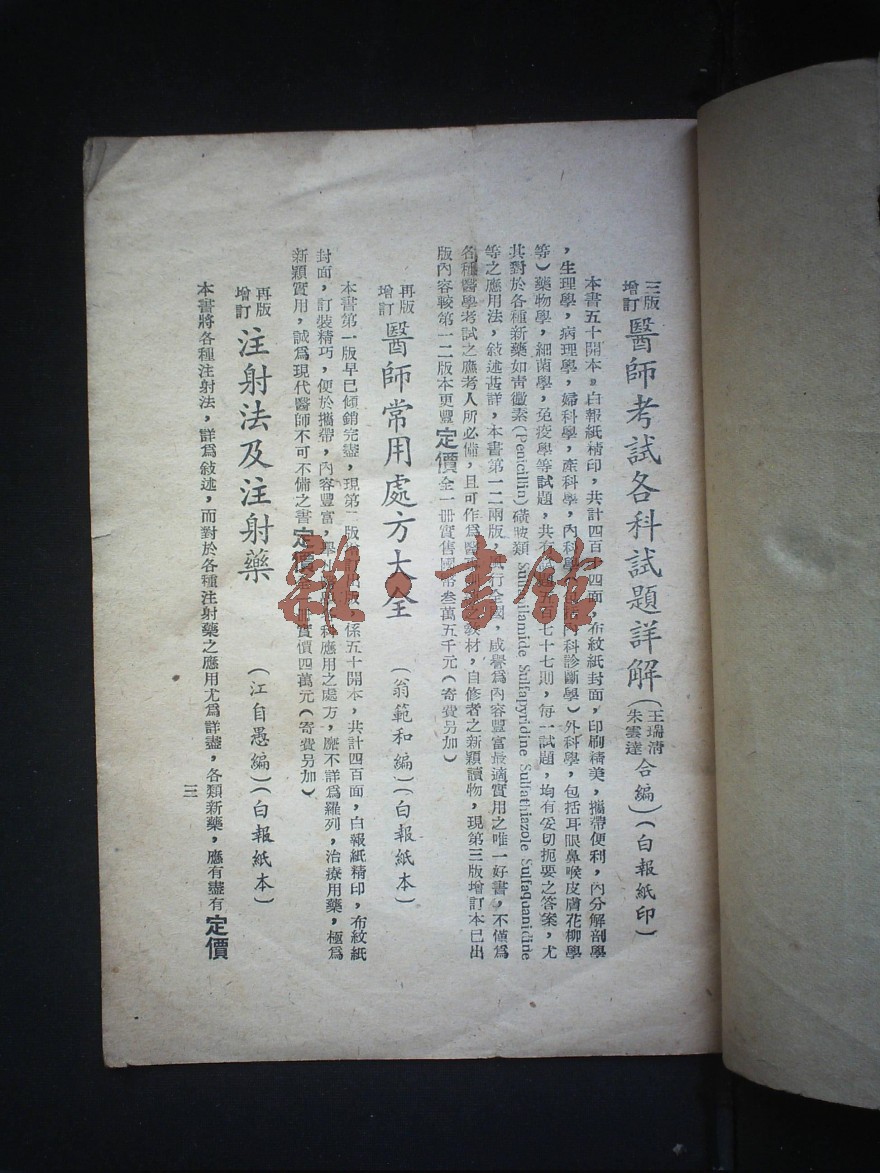 三版增訂 醫師考試各科試題詳解（王瑞清 朱雲達 合編）（白報紙印）
本書五十開本，白報紙精印，共計四百十四面，布紋紙封面，印刷精美，攜帶便利，內分解剖學
，生理學，病理學，婦科學，產科學，內科學 內科診斷學）外科學，包括耳眼鼻喉皮膚花柳學
等）藥物學，細菌學，免疫學等試題，共有 七十七則，每一試題，均有妥切扼要之答案，尤
其對於各種新藥如青黴素(Penicillin)磺胺類 Sulfanilamide Sulfapyridine Sulfathiazole Sulfaquanidine
等之應用法，敍述甚詳，本書第一二兩版，風行全國，咸譽爲內容豐富最適實用之唯一好書，不僅爲
各種醫學考試之應考人所必備，且可作爲醫 教材，自修者之新穎讀物，現第三版增訂本已出
版內容較第一二版本更豐定價全一冊實售國幣叁萬五千元（寄費另加）
再版增訂 醫師常用處方大全（翁範和編）（白報紙本）
本書第一版早已傾銷完盡，現第二版 出版，係五十開本，共計四百面，白報紙精印，布紋紙
封面，訂裝精巧，便於攜帶，內容豐富，舉凡 科應用之處方，靡不詳爲羅列，治療用藥，極爲
新穎實用，誠爲現代醫師不可不備之書定價 冊實價四萬元（寄費另加）
再版增訂 注射法及注射藥（江自愚編）（白報紙本）
本書將各種注射法，詳爲敍述，而對於各種注射藥之應用尤爲詳盡，各類新藥，應有盡有定價
三
雜·書館